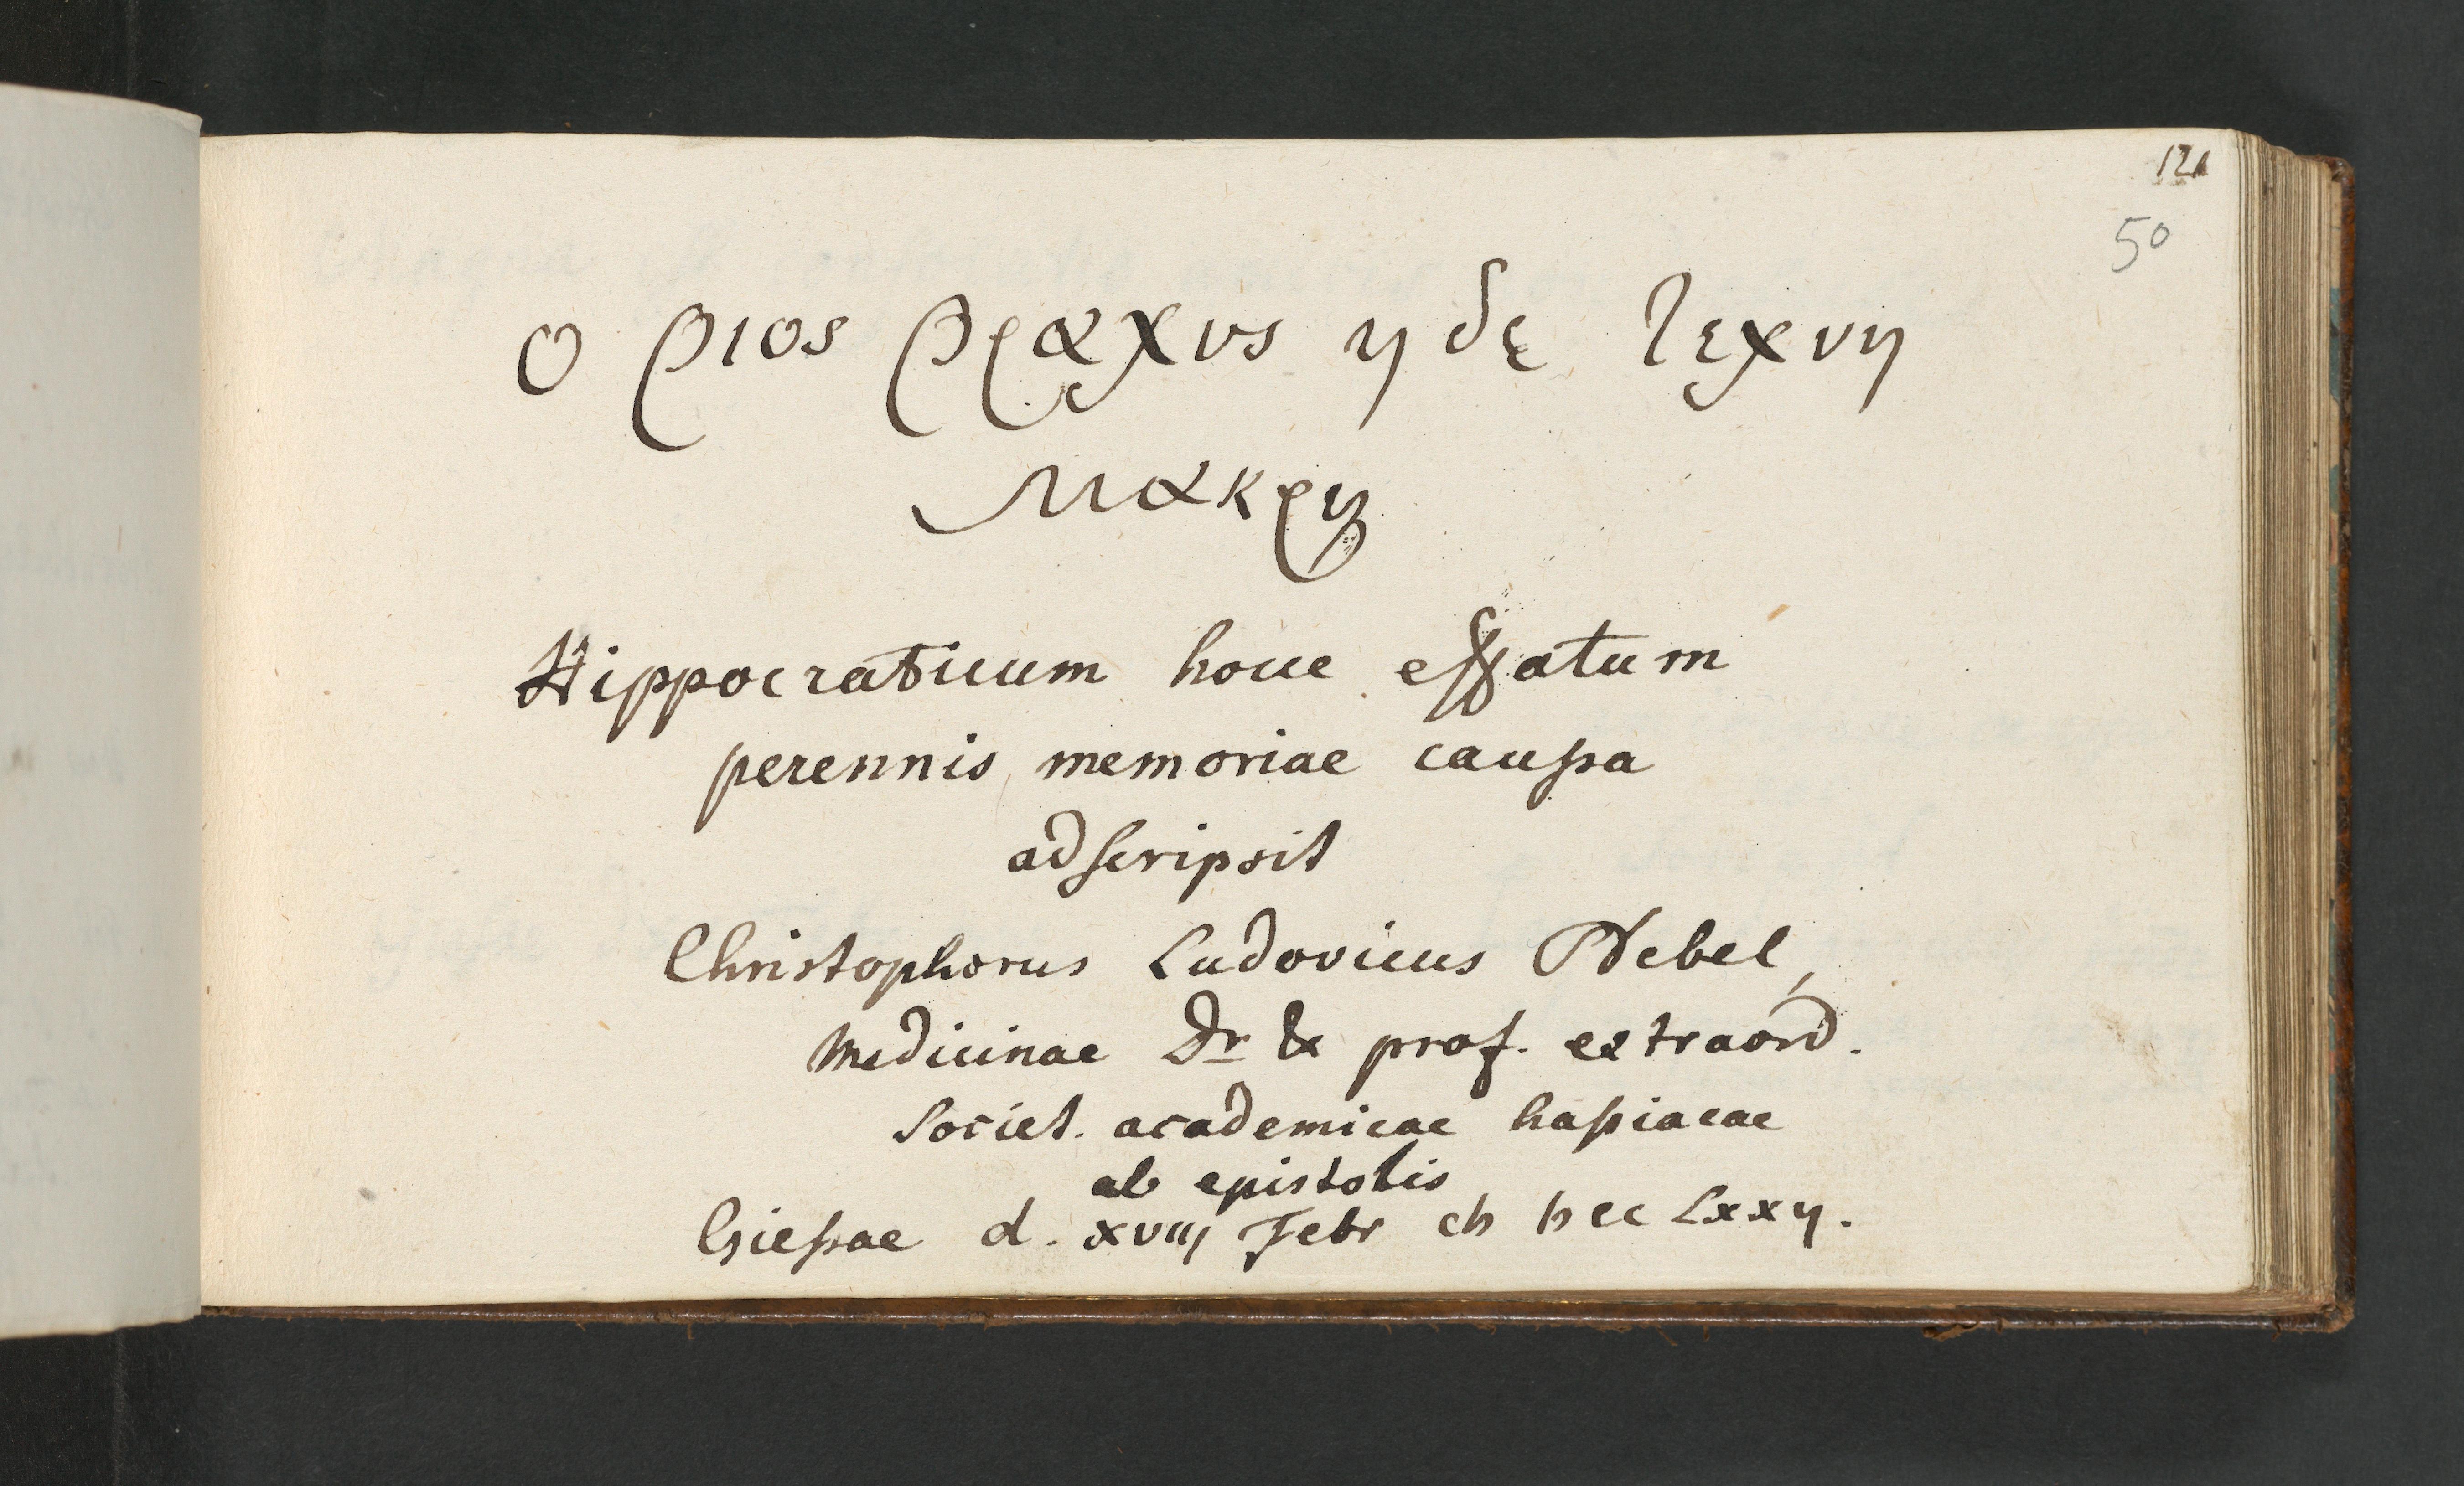 121
50
ο βιος βραχυς η δε τεχνη
μακρη
Hippocraticum hocce effatum
perennis memoriae caussa
adscripsit
Christophorus Ludovicus Nebel,
Medicinae Dr & prof. extraord.
Societ. academicae hassiacae
ab epistolis
Giessae d. XVIII Febr cIɔ Iɔ cc LXXII.